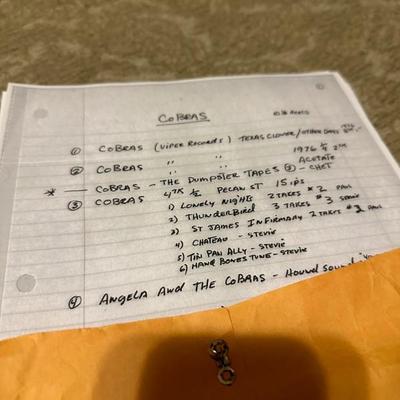 COBRAS
① COBRAS (VIPER RECORDS) TEXAS CLOVER/OTHER DAYS
② COBRAS " " 1976
ACETATE
* — COBRAS - THE DUMPSTER TAPES ② - CHET
③ COBRAS 4TR ½ PECAN ST 15 ips
1) LONELY NIGHTS 2 TAKES #2
2) THUNDERBIRD 3 TAKES #3
3) ST JAMES INFIRMARY 2 TAKES #2
4) CHATEAU - STEVIE
5) TIN PAN ALLY - STEVIE
6) HAND BONES TUNE - STEVIE
④ ANGELA AND THE COBRAS - HOUND SOUND